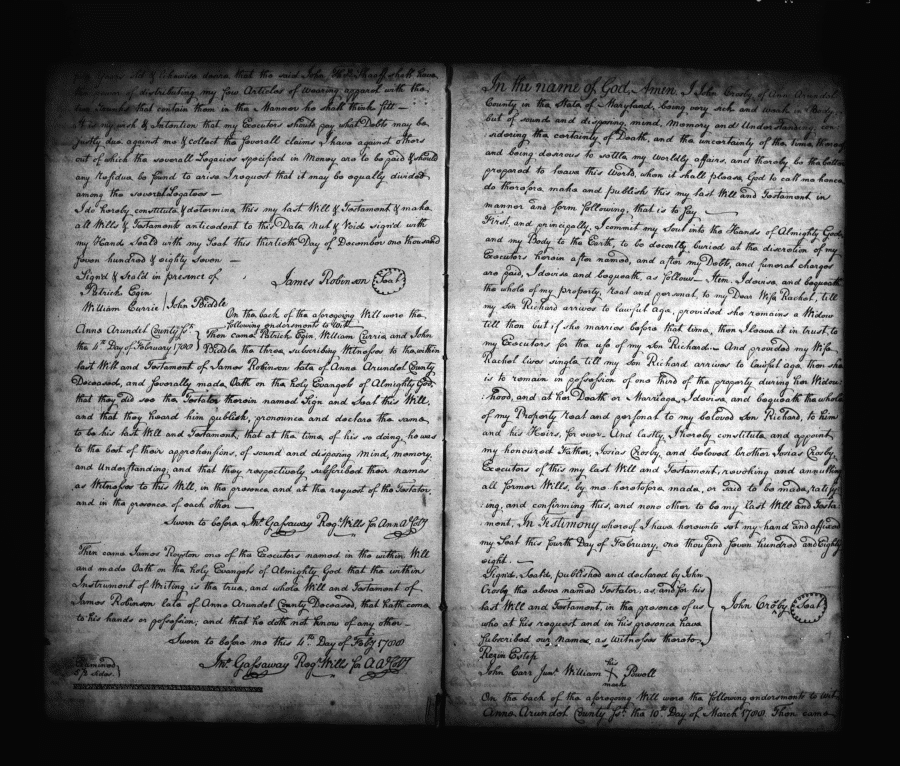 slit & likewise desire that the said John shall have
the power of distributing my few Articles of wearing apparel with the
two Trunks that contain them in the Manner he shall think fitt —
It is my wish & Intention that my Executors should pay what Debts may be
justly due against me & collect the severall claims I have against others
out of which the severall Legacies specified in Money are to be paid & should
any residue be found to arise I request that it may be equally divided
among the several Legatees —
I do hereby constitute & determine this my last Will & Testament & make
all Wills & Testaments antecedent to this Date Null & Void sign'd with
my Hand Seald with my Seal this thirtieth Day of December one thousand
seven hundred & eighty seven —
Sign'd & Seald in presence of
James Robinson (Seal)
Patrick Egin
William Currie / John Biddle
On the back of the aforegoing Will were the
following endorsments to Wit
Anne Arundel County Sst. } Then came Patrick Egin, William Currie and John
the 4th Day of February 1788 } Biddle the three subscribing Witnesses to the within
last Will and Testament of James Robinson late of Anne Arundel County
Deceased, and severally made Oath on the holy Evangels of Almighty God
that they did see the Testator therein named Sign and Seal this Will,
and that they heard him publish, pronounce and declare the same
to be his last Will and Testament, that at the time of his so doing, he was
to the best of their apprehensions, of sound and disposing mind, memory,
and Understanding; and that they respectively subscribed their names
as Witnesses to this Will, in the presence and at the request of the Testator,
and in the presence of each other —
Sworn to before Jno. Gassaway Regr. Wills Co. Ann Al Coty
Then came James Royston one of the Executors named in the within Will
and made Oath on the holy Evangels of Almighty God that the within
Instrument of Writing is the true, and whole Will and Testament of
James Robinson late of Anne Arundel County Deceased, that hath came
to his hands or possession; and that he doth not know of any other —
Sworn to before me this 4th Day of Feby. 1788
Jno. Gassaway Regr. Wills Co. A. Al Coty
Examined
sides. }
In the name of God, Amen. I John Crosby of Ann Arundel
County in the State of Maryland, being very sick and weak in Body
but of sound and disposing mind, Memory and Understanding, con
sidering the certainty of Death, and the uncertainty of the time thereof
and being desirous to settle my worldly affairs, and thereby be the better
prepared to leave this World, when it shall please God to call me hence
do therefore make and publish this my last Will and Testament in
manner and form following, that is to say —
First, and principally, I commit my Soul into the Hands of Almighty God
and my Body to the Earth, to be decently buried at the discretion of my
Executors herein after named, and after my Debts, and funeral charges
are paid, I devise and bequeath, as follows. Item, I devise, and bequeath
the whole of my property, real and personal, to my Dear Wife Rachel, till
my son Richard arrives to lawful Age, provided she remains a Widow
till then but if she marries before that time, then I leave it in trust, to
my Executors for the use of my son Richard. — And provided my Wife
Rachel lives single till my son Richard arrives to lawful age, then she
is to remain in possession of one third of the property during her Widow
hood, and at her Death or Marriage, I devise, and bequeath the whole
of my Property real and personal to my beloved son Richard, to him
and his Heirs, for ever. And lastly, I hereby constitute and appoint
my honoured Father, Josias Crosby, and beloved Brother Josias Crosby
Executors of this my last Will and Testament, revoking and annulling
all former Wills, by me heretofore made, or said to be made, ratify
ing, and confirming this, and none other to be my last Will and Testa
ment. In Testimony whereof I have hereunto set my hand and affixed
my Seal this fourth Day of February, one thousand seven hundred and Eighty
eight. —
Sign'd, Seald, published and declared by John
Crosby the above named Testator, as, and for his
last Will and Testament, in the presence of us
who at his request and in his presence have
subscribed our names, as Witnesses thereto.
John Crosby (Seal)
Rezin Estep
John Carr Junr. William his X mark Powell
On the back of the aforegoing Will were the following endorsments to Wit
Anne Arundel County Sst. the 10th Day of March 1788. Then came